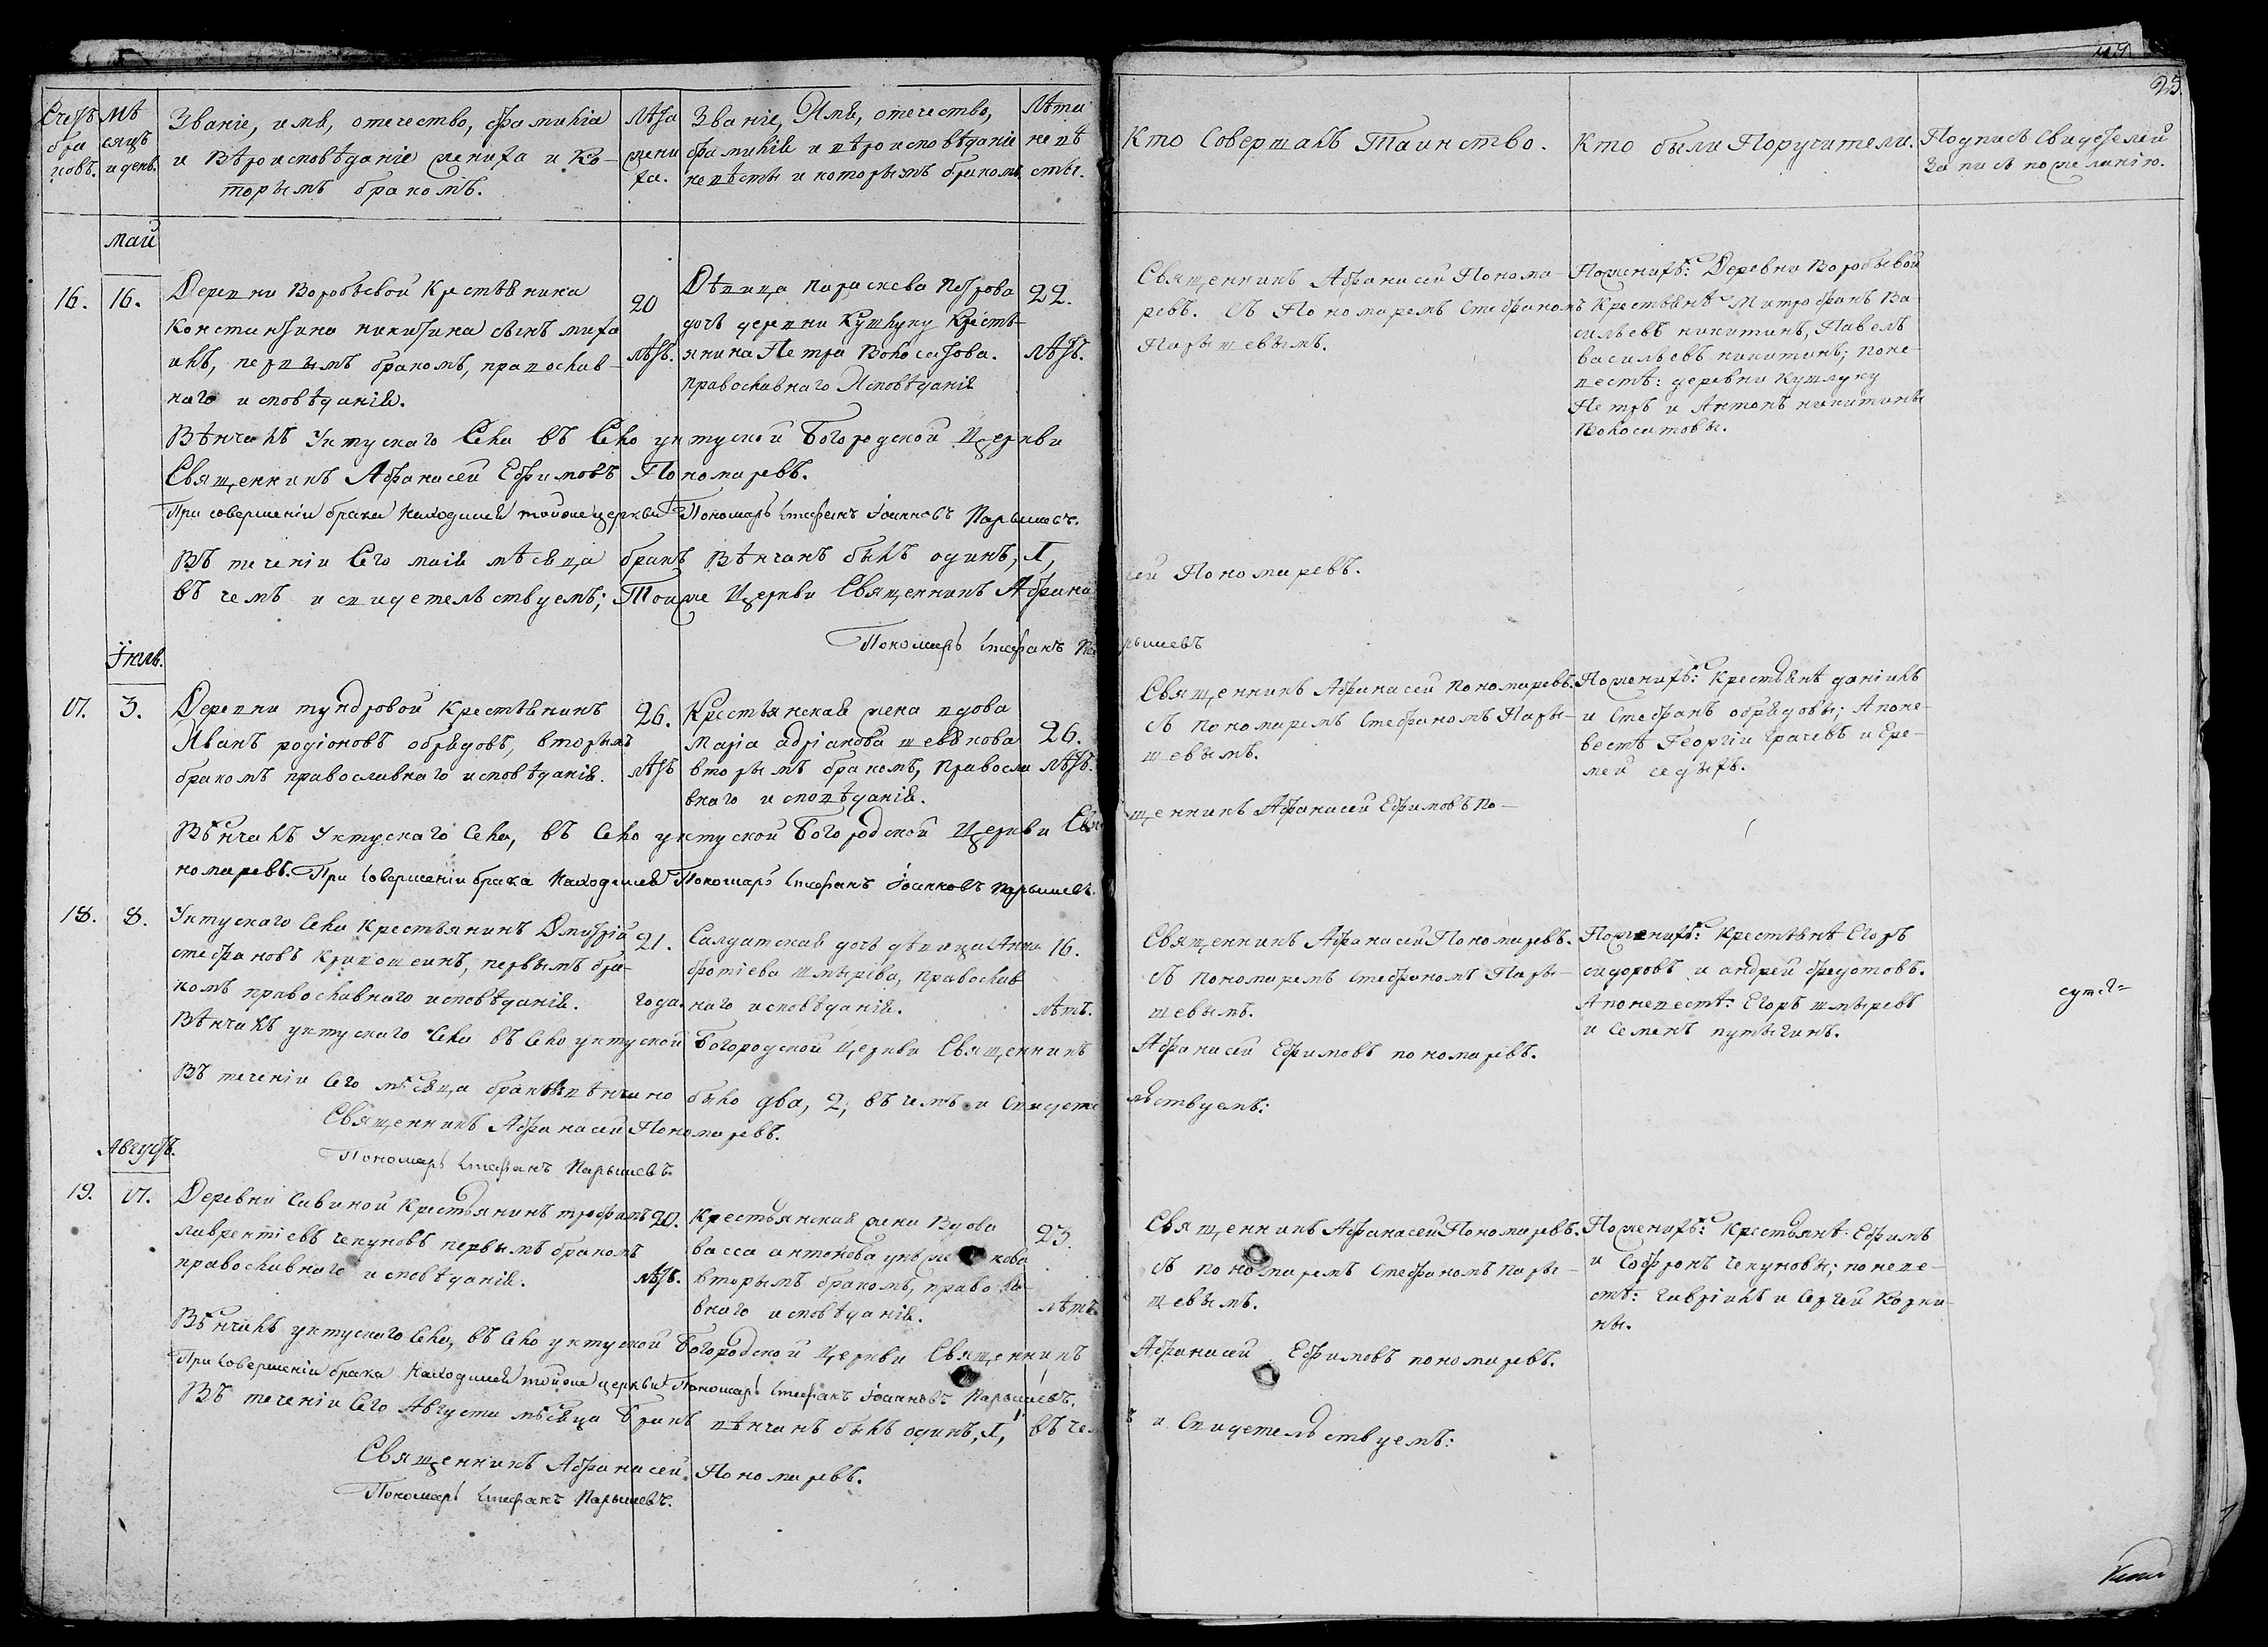 Счетъ бра ковъ.
Мѣ сяцъ и день.
Званіе, имя, отечество, фамилія
и Вѣроисповѣданіе жениха и Ко-
торымъ бракомъ.
Лѣта жени ха.
Званіе, Имя, отечество,
фамилія и вѣроисповѣданіе
невѣсты и которымъ бракомъ
Лѣта невѣ сты.
Кто Совершалъ Таинство.
Кто были Поручители.
Подпись Свидетелей
Запись по желанію.
25
Май
16.
16.
Деревни Воробьевой Крестьянина
Константина никитина сынъ миха
илъ, первымъ бракомъ, православ-
наго исповѣданія.
20
лѣтъ.
Дѣвица параскева Петрова
дочь деревни Кушлуку Кресть-
янина Петра Волосатова.
православнаго Исповѣданія
22.
лѣтъ.
Священникъ Афанасей Понома-
ревъ. Съ Пономаремъ Стефаномъ
Парышевымъ.
По женихѣ: Деревни Воробьевой
Крестьянѣ Митрофанъ Ва-
сильевъ никитинъ, Павелъ
васильевъ никитинъ; по не-
вестѣ: деревни Кушлуку
Петръ и Антонъ никитины
Волосатовы.
Вѣнчалъ Уктускаго Села въ Село уктуской Богородской Церкви
Священникъ Афанасей Ефимовъ Пономаревъ.
При совершеніи брака Находился тойже церкви Пономарь Стефанъ Іоанновъ Парышевъ.
Въ теченіи Сего маія мѣсяца бракъ Вѣнчанъ былъ одинъ, 1,
въ чемъ и свидетельствуемъ; Тойже Церкви Священникъ Афанасей Пономаревъ.
Пономарь Стефанъ Парышевъ
Іюль.
17.
3.
Деревни тундровой Крестьянинъ
Иванъ родіоновъ обрядовъ, вторымъ
бракомъ православнаго исповѣданія.
26.
лѣтъ
Крестьянская жена вдова
Марія адріанова
вторымъ бракомъ, Правосла
внаго исповѣданія.
26.
лѣтъ.
Священникъ Афанасей Пономаревъ.
Съ пономаремъ Стефаномъ Пары-
шевымъ.
По женихѣ: Крестьянѣ даніилъ
и Стефанъ обрядовы; А по не-
вестѣ Георгіи Грачевъ и Ере-
мей седыхъ.
Вѣнчалъ Уктускаго Села, въ Село уктуской Богородской Церкви Священникъ Афанасей Ефимовъ По-
номаревъ. При Совершеніи брака Находился Пономарь Стефанъ Іоанновъ Парышевъ.
18.
8.
Уктускаго Села Крестьянинъ Дмитрій
стефановъ Кривошеинъ, первымъ бра-
комъ православнаго исповѣданія.
21.
года.
Салдатская дочь дѣвица Анна
фотіева шмырева, Православ
наго исповѣданія.
16.
лѣтъ.
Священникъ Афанасей Пономаревъ.
Съ пономаремъ Стефаномъ Пары-
шевымъ.
По женихѣ: Крестьянѣ Егоръ
сидоровъ и андрей федотовъ.
А по невестѣ: Егоръ шмыревъ
и Семенъ путыгинъ.
Вѣнчалъ уктускаго Села въ Село уктуской Богородской Церкви Священникъ Афанасей Ефимовъ пономаревъ.
Въ теченіи Сего мѣсяца браковъ вѣнчано было два, 2; въ чемъ и Свидетельствуемъ:
Священникъ Афанасей Пономаревъ.
Пономарь Стефанъ Парышевъ.
Августъ.
19.
17.
Деревни Савиной Крестьянинъ трофимъ
лаврентіевъ чекуновъ первымъ бракомъ
православнаго исповѣданія.
20.
лѣтъ.
Крестьянская жена Вдова
васса антонова
вторымъ бракомъ, правосла-
внаго исповѣданія.
23.
лѣтъ
Священникъ Афанасей Пономаревъ.
Съ пономаремъ Стефаномъ пары-
шевымъ.
По женихѣ: Крестьянѣ Ефимъ
и Софронъ Чекуновы; по неве-
стѣ: гавріилъ и Сергей Корки-
ны.
Вѣнчалъ уктускаго Села, въ Село уктуской Богородской Церкви Священникъ Афанасей Ефимовъ пономаревъ.
При Совершеніи брака Находился тойже церкви Пономарь Стефанъ Іоанновъ Парышевъ.
Въ теченіи Сего Августа мѣсяца Бракъ вѣнчанъ былъ одинъ, 1, въ чемъ и Свидетельствуемъ:
Священникъ Афанасей Пономаревъ.
Пономарь Стефанъ Парышевъ.